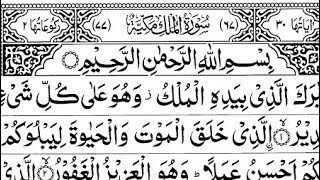 اٰیَاتُهَا ٣٠ (٦٧) سُوْرَةُ الْمُلْكِ مَكِّیَّةٌ (٧٧) رُكُوْعَاتُهَا ٢
بِسْمِ اللّٰهِ الرَّحْمٰنِ الرَّحِیْمِ
بٰرَكَ الَّذِیْ بِیَدِهِ الْمُلْكُ ز وَهُوَ عَلٰی كُلِّ شَیْءٍ
دِیْرُ ۙ﴿١﴾ الَّذِیْ خَلَقَ الْمَوْتَ وَالْحَیٰوةَ لِیَبْلُوَكُمْ
كُمْ اَحْسَنُ عَمَلًا ؕ وَهُوَ الْعَزِیْزُ الْغَفُوْرُ ۙ﴿٢﴾ الَّذِیْ